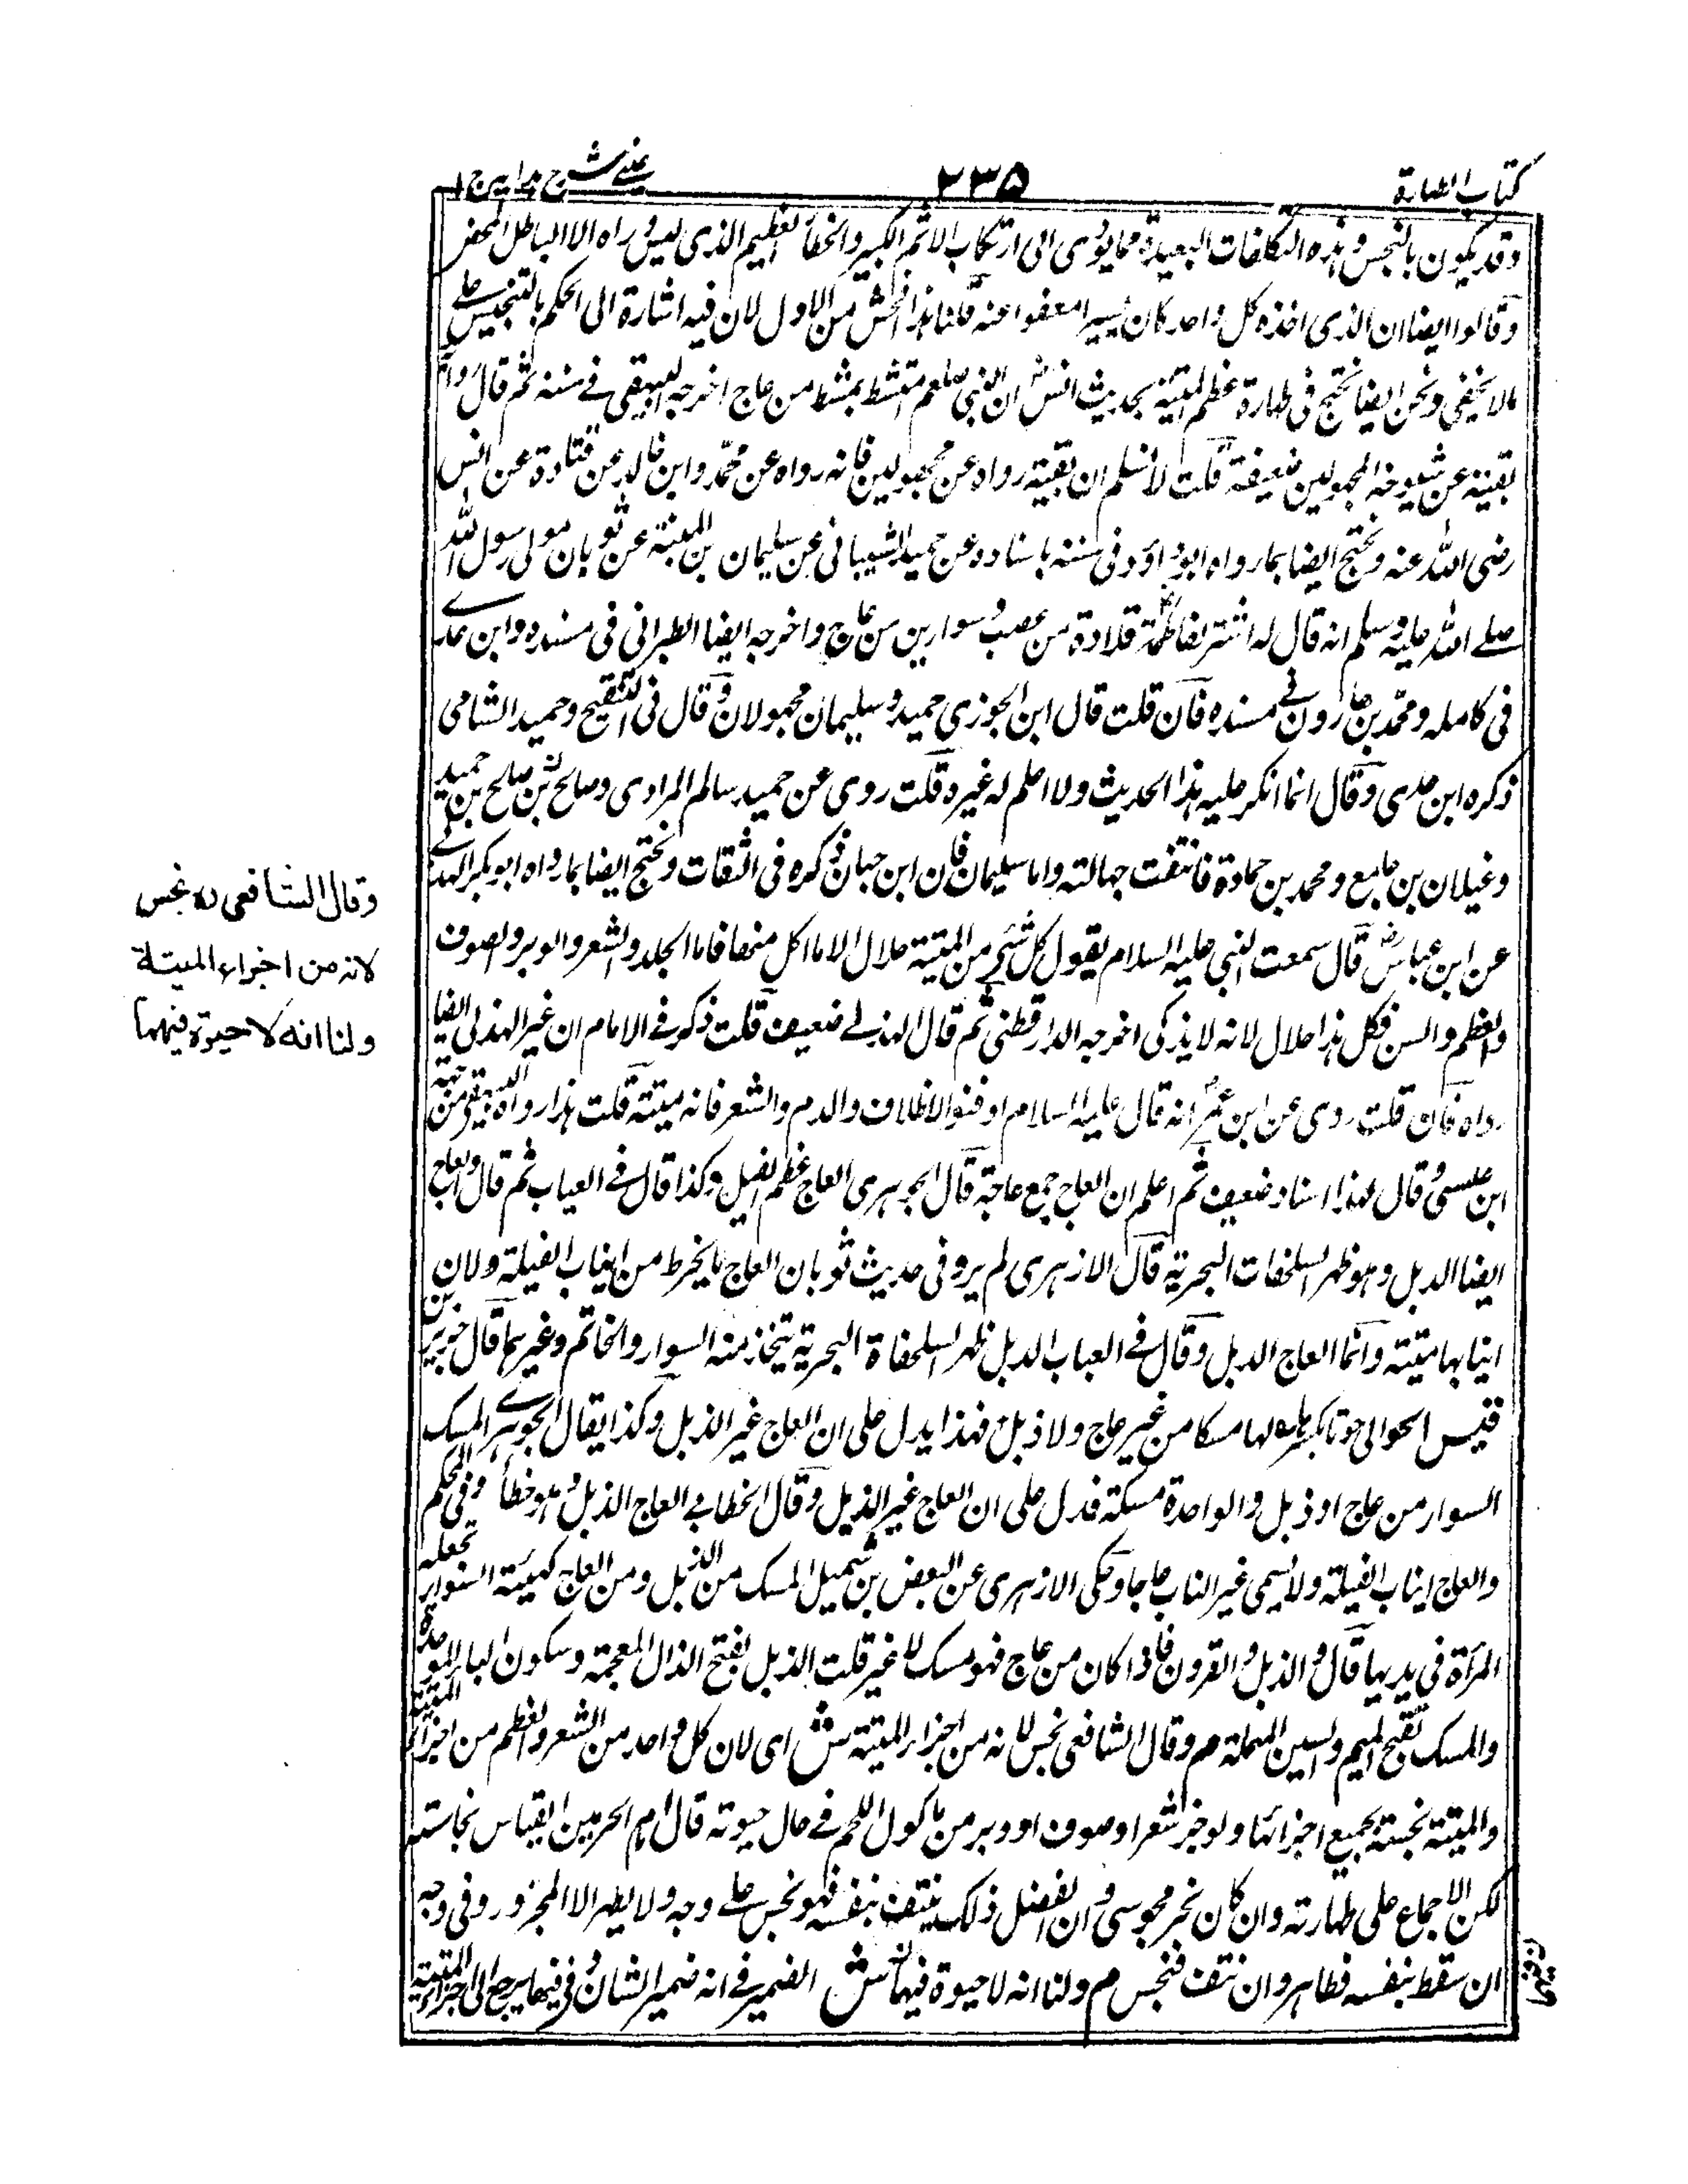 كتاب الطهارة
٢٣٥
عینی شرح ہدایہ ج ١
وقد يكون بالنجس وهذه التكلفات البعيدة مما يؤدى الى ارتكاب الاثم الكبير والخطأ العظيم الذى ليس وراه الا الباطل المحض
وقالوا ايضا ان الذى اخذه كل واحد كان يسيرا معفوا عنه قلنا هذا افحش من الاول لان فيه اشارة الى الحكم بالتنجيس على
مالا يخفى ونحن ايضا نحتج فى طهارة عظم الميتة بحديث انس رض ان النبى صلعم امتشط بمشط من عاج اخرجه البيهقى فے سننه ثم قال
بقية عن شيوخه المجهولين ضعيفة قلت لا نسلم ان بقية رواه عن مجهولين فانه رواه عن محمد وابن خالد عن قتادة عن انس
رضى الله عنه ونحتج ايضا بما رواه ابو داؤد فى سننه باسناده عن حميد الشيبانى عن سليمان المنبه عن ثوبان مولى رسول الله
صلے الله عليه وسلم انه قال له اشتر لفاطمة قلادة من عصب وسوارين من عاج واخرجه ايضا الطبرانى فى مسنده وابن عدے
فى كامله ومحمد بن هارون فے مسنده فان قلت قال ابن الجوزى حميد وسليمان مجهولان وقال فى التنقيح وحميد الشامى
ذكره ابن عدى وقال انما انكر عليه هذا الحديث ولا اعلم له غيره قلت روى عن حميد سالم المرادى وصالح بن صلح بن حميد
وغيلان بن جامع ومحمد بن جحادة فانتفت جهالته واما سليمان فان ابن حبان ذكره فى الثقات ونحتج ايضا بما رواه ابو بكر الهذلے
عن ابن عباس رض قال سمعت النبى عليه السلام يقول كل شئ من الميتة حلال الا ما اكل منها فاما الجلد والشعر والوبر والصوف
والعظم والسن فكل هذا حلال لانه لا يذكى اخرجه الدار قطنى ثم قال الهذلے ضعيف قلت ذكر فے الامام ان غير الهذلى ايضا
رواه فان قلت روى عن ابن عمر رض انه قال عليه السلام ادفنوا الاظلاف والدم والشعر فانه ميتة قلت هذا رواه البيهقى من جهة
ابن عيسى وقال هذا اسناد ضعيف ثم اعلم ان العاج جمع عاجة قال الجوهرى العاج عظم الفيل وكذا قال فے العباب ثم قال والعاج
ايضا الدبل وهو ظهر السلحفات البحرية قال الازهرى لم يرو فى حديث ثوبان العاج ما يخرط من انياب الفيلة ولان
انيابها ميتة وانما العاج الدبل وقال فے العباب الدبل ظهر السلحفاة البحرية يتخذ منه السوار والخاتم وغيرهما قال جرير بن
السوار من عاج او ذبل والواحدة مسكة فدل على ان العاج غير الذبل وقال الخطابے العاج الذبل وهو خطأ وفى المحكم
والعاج انياب الفيلة ولا يسمى غير الناب عاجا وحكى الازهرى عن البعض بن شميل المسك من الذبل ومن العاج كهيئة السوار تجعله
المرأة فى يديها قال والذبل والقرون فاذا كان من عاج فهو مسك لا غير قلت الذبل بفتح الذال المعجمة وسكون الباء الموحدة
والمسك بفتح الميم والسين المهملة م وقال الشافعى نجس لانه من اجزاء الميتة ش اى لان كل واحد من الشعر والعظم من اجزاء الميتة
والميتة نجسة بجميع اجزائها ولو جز شعر او صوف او وبر من ماكول اللحم فے حال حيوته قال امام الحرمين القياس نجاسته
لكن الاجماع على طهارته وان كان نجز مجوسى وان انفصل ذلك بنتف بنفسه فهو نجس على وجه ولا يطهر الا المجزور وفى وجه
ان سقط بنفسه فطاهر وان نتف فنجس م ولنا انه لا حيوة فيهما ش الضمير فے انه ضمير الشان وفى فيهما يرجع الى اجزاء الميتة
وقال الشافعى رہ نجس
لانه من اجزاء الميتة
ولنا انه لا حيوة فيهما